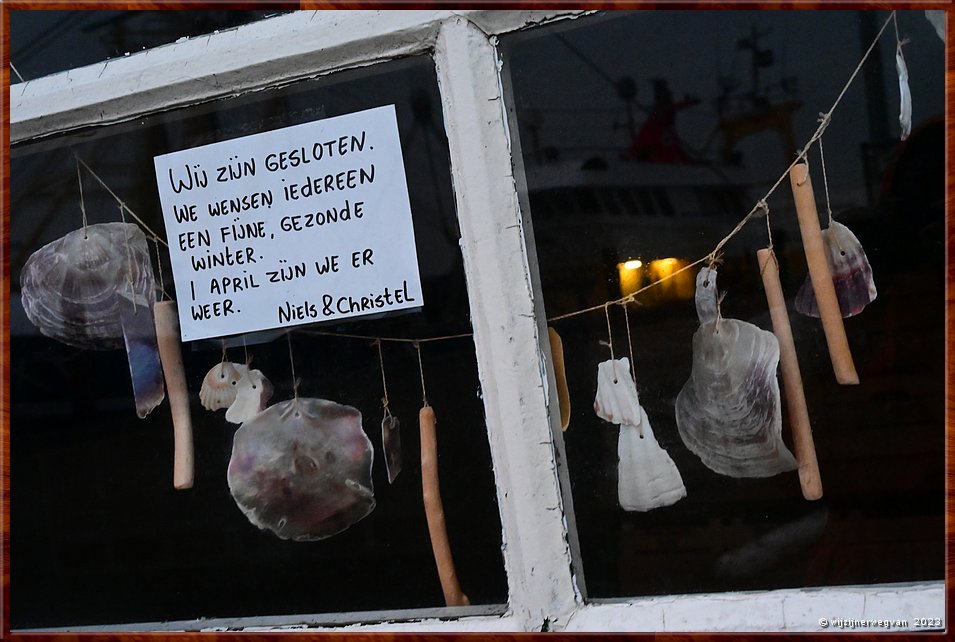 Wij zijn gesloten.
We wensen iedereen
een fijne, gezonde
winter.
1 april zijn we er
weer. Niels & Christel
© wijzijnerwegvan 2023